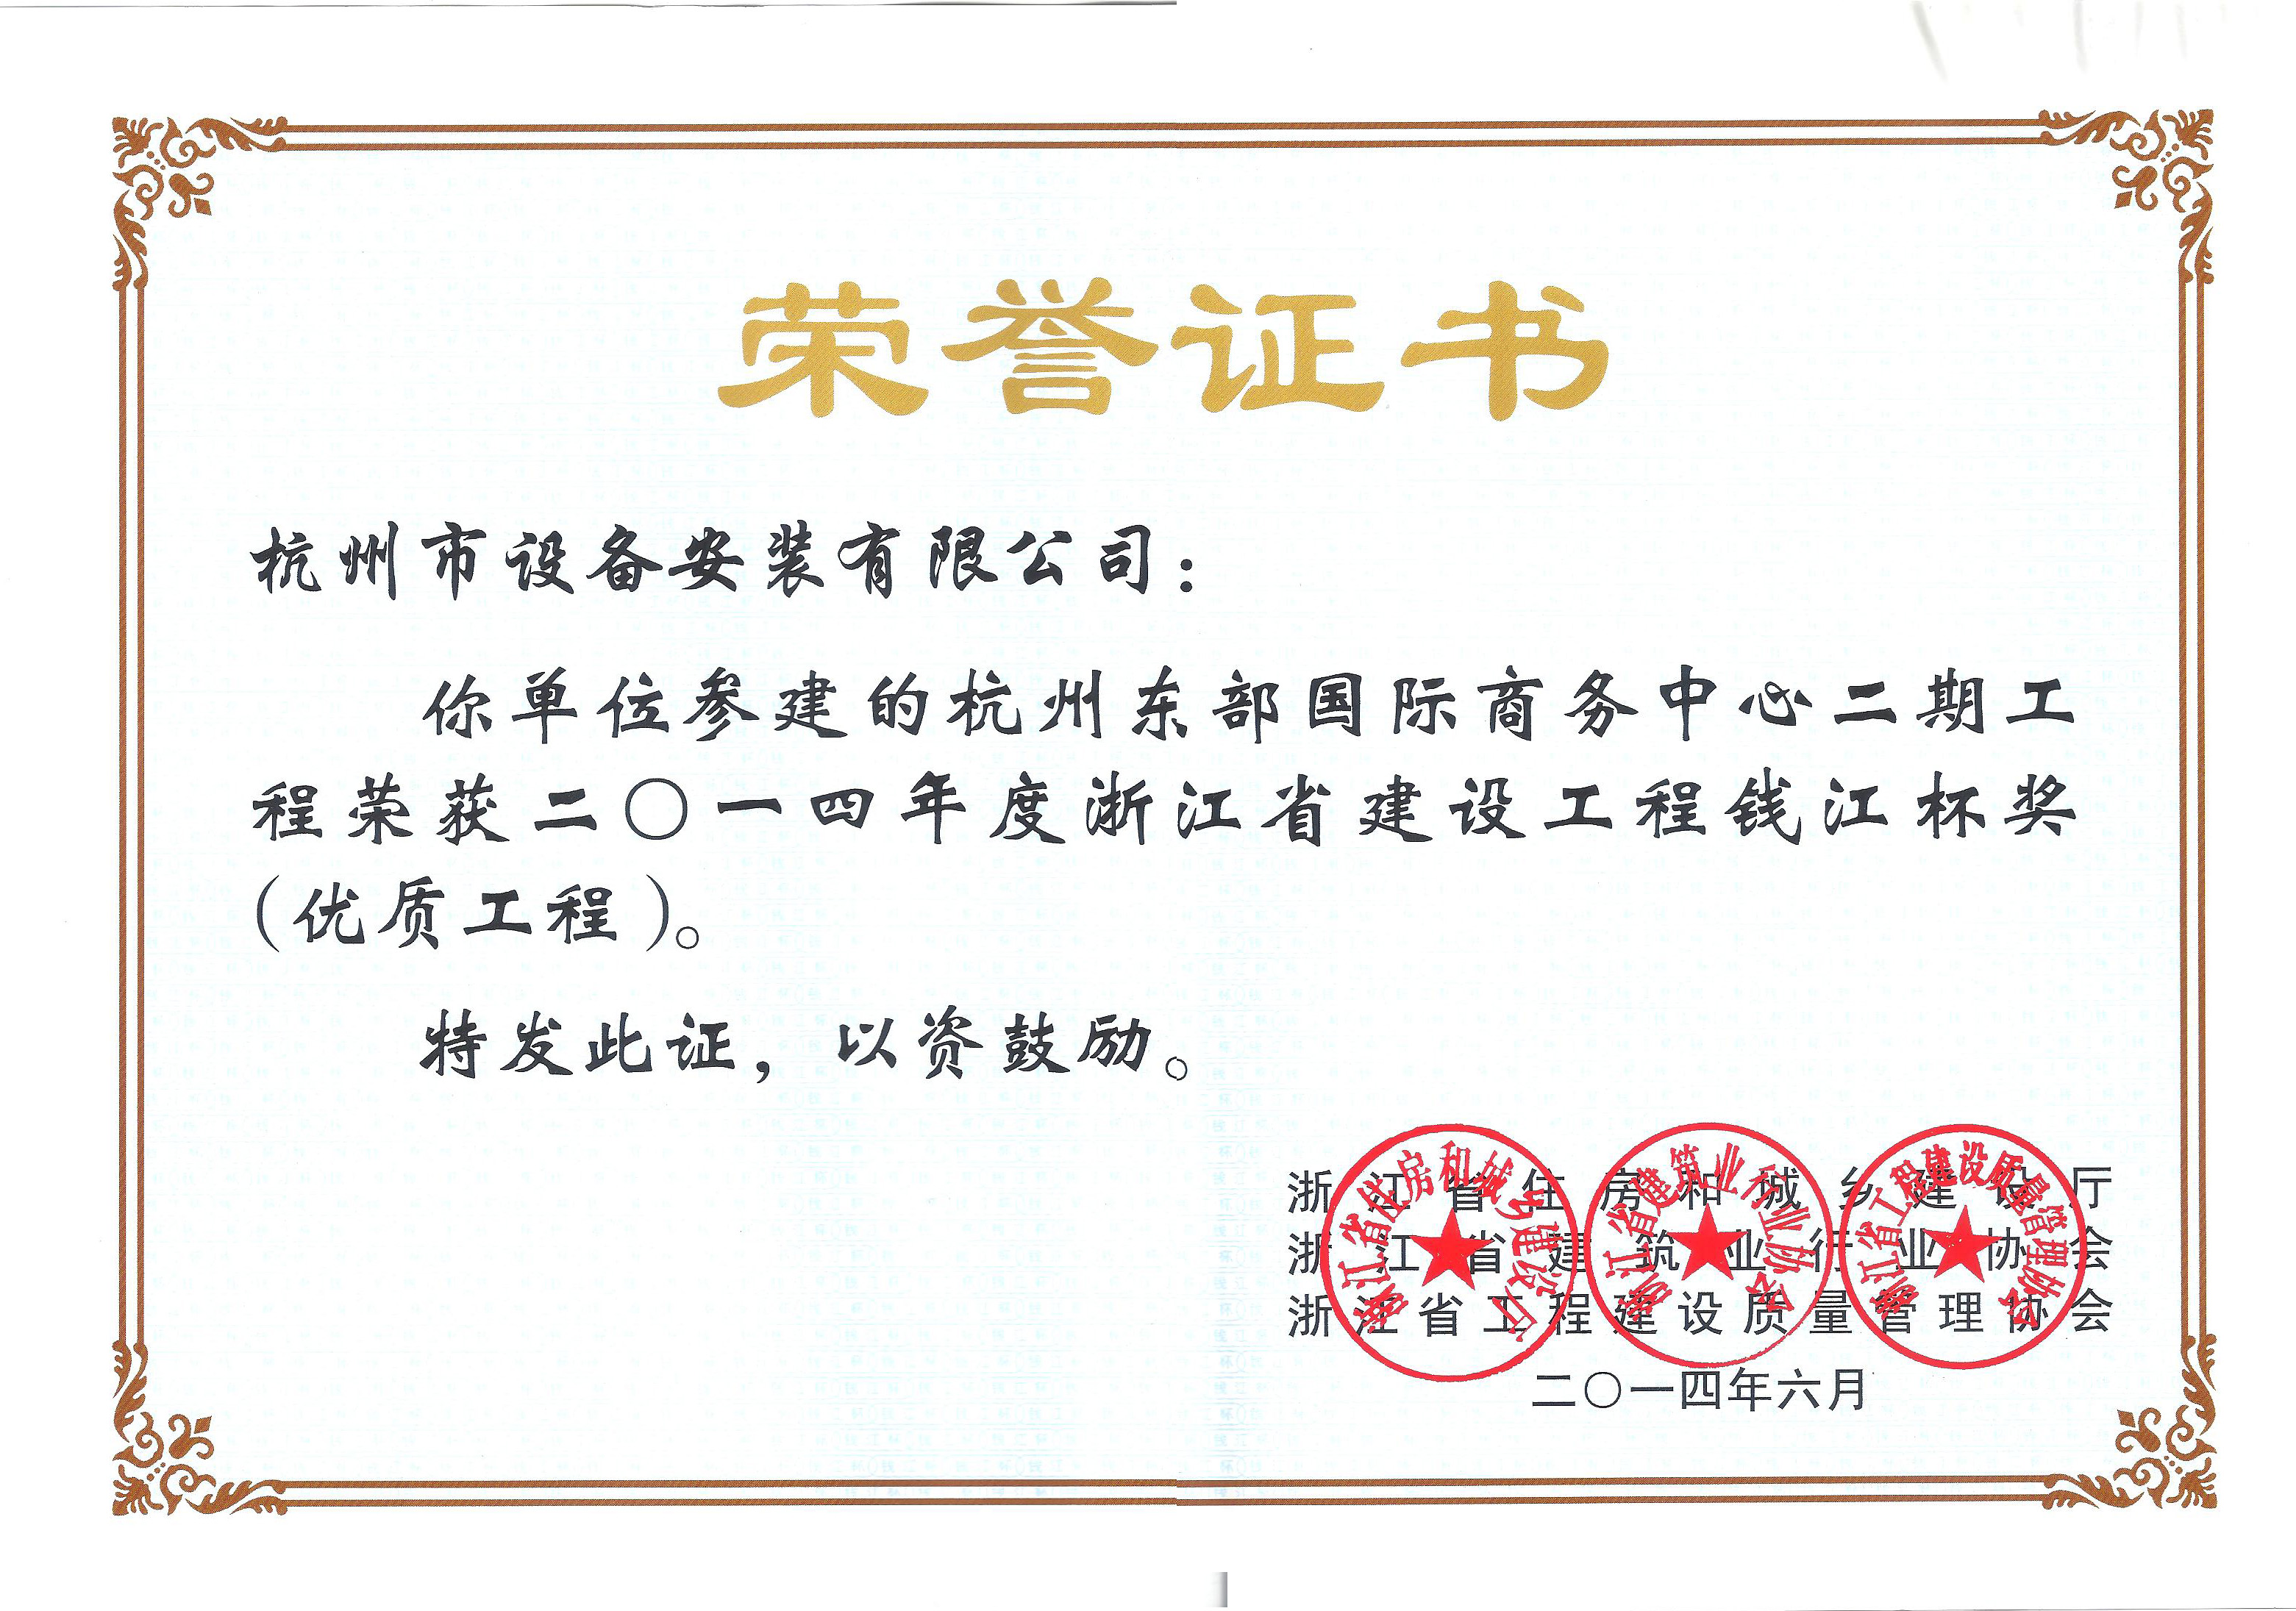 荣誉证书
杭州市设备安装有限公司：
你单位参建的杭州东部国际商务中心二期工
程荣获二〇一四年度浙江省建设工程钱江杯奖
(优质工程)。
特发此证，以资鼓励。
浙江省住房和城乡建设厅
浙江省建筑业行业协会
浙江省工程建设质量管理协会
二〇一四年六月
浙江省住房和城乡建设厅
浙江省建筑业行业协会
浙江省工程建设质量管理协会